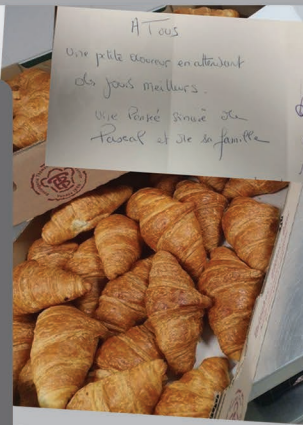 A Tous
une petite douceur en attendant
des jours meilleurs.
une Pensée sincère de
Pascal et de sa famille